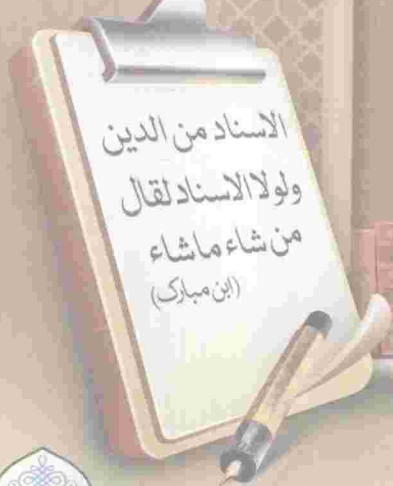 الاسناد من الدين
ولولا الاسناد لقال
من شاء ماشاء
(ابن مبارک)